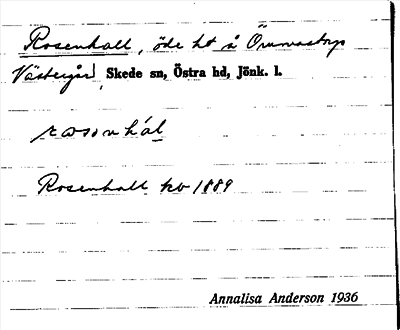 Rosenhall, öde ht å Ömmestorps
Västergård, Skede sn, Östra hd, Jönk. l.
Rosenhall kb 1889
Annalisa Anderson 1936